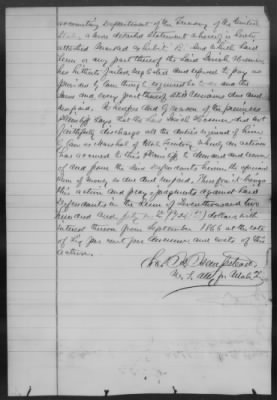 accounting Department of the Treasury of the United
States, a more detailed Statement whereof is hereto
attached marked Exhibit B. And which said
sum or any part thereof the said Isaiah
has hitherto failed, neglected and refused to pay as
provided by law though requested to do so and the
same and every part thereof still remains due and
unpaid. To recover and by reason of the premises
plaintiff says that the said Isaiah did not
faithfully discharge all the duties required of him
by law as Marshal of Utah Territory whereby an action
has accrued to this plaintiff to demand and recover
of and from the said defendants herein the aforesaid
sum of money so due and unpaid. Therefore it brings
this action and prays judgment against said
Defendants in the sum of Seventhousand two
hundred and fifty &
interest thereon from September 1866 at the rate
of Six per cent per annum and costs of this
action.
U. S. Atty for Utah T.